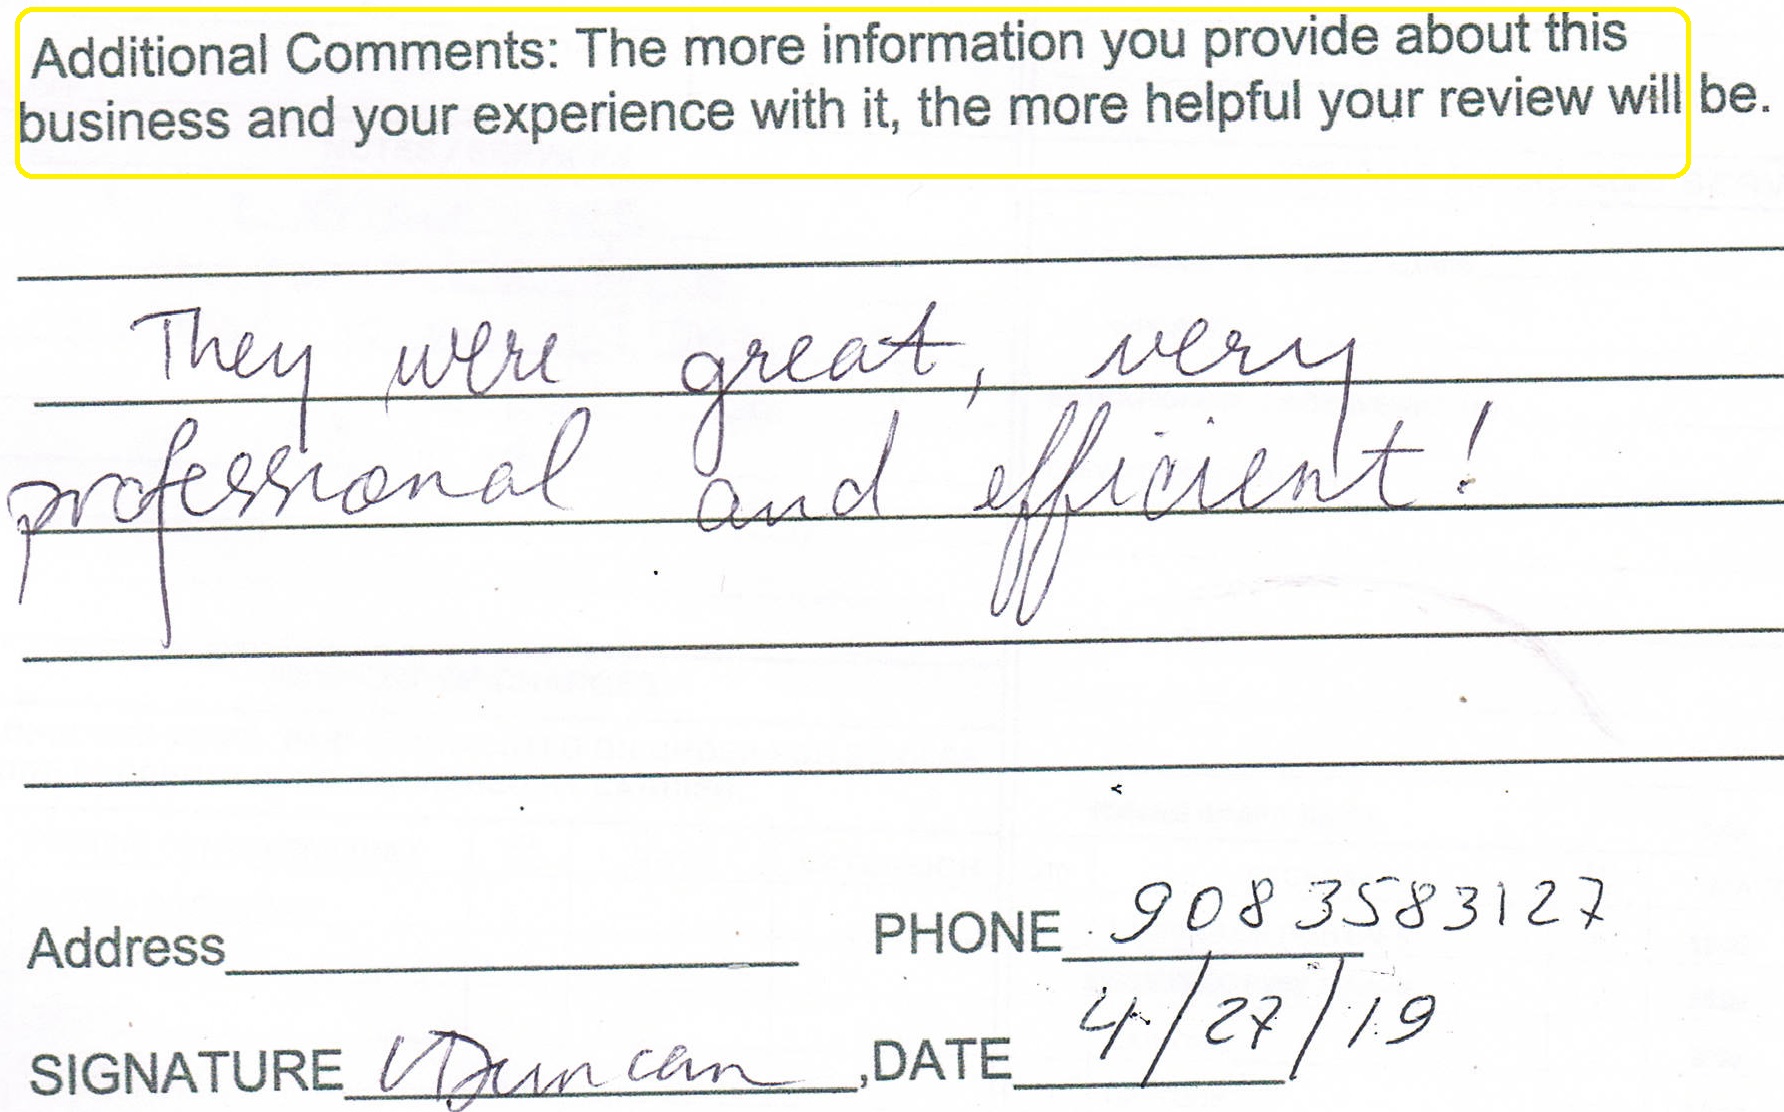 Additional Comments: The more information you provide about this
business and your experience with it, the more helpful your review will be.
They were great, very
professional and efficient!
Address PHONE 9083583127
SIGNATURE VDuncan ,DATE 4/27/19